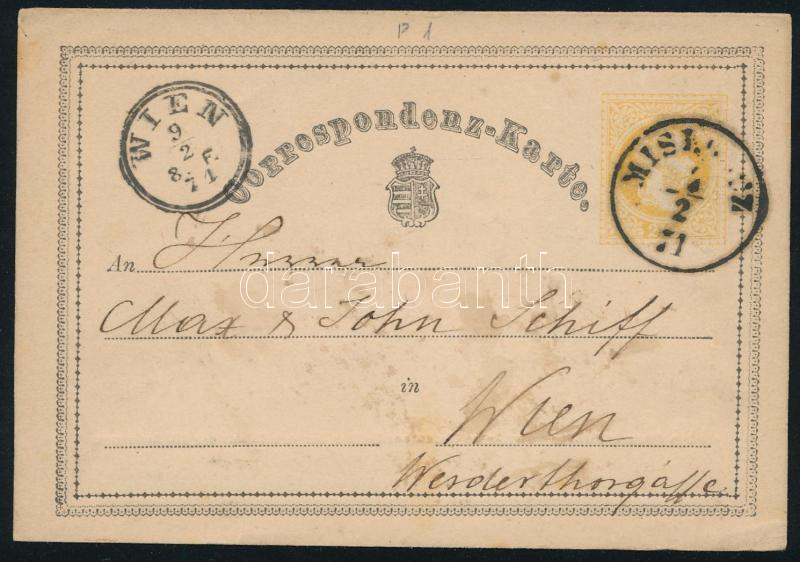 P 1
WIEN
9/2
8 F
71
Correspondenz-Karte.
MIS
2
71
2
An Herrn
Max & John Schiff
in
Wien
Werderthorgasse
darabanth